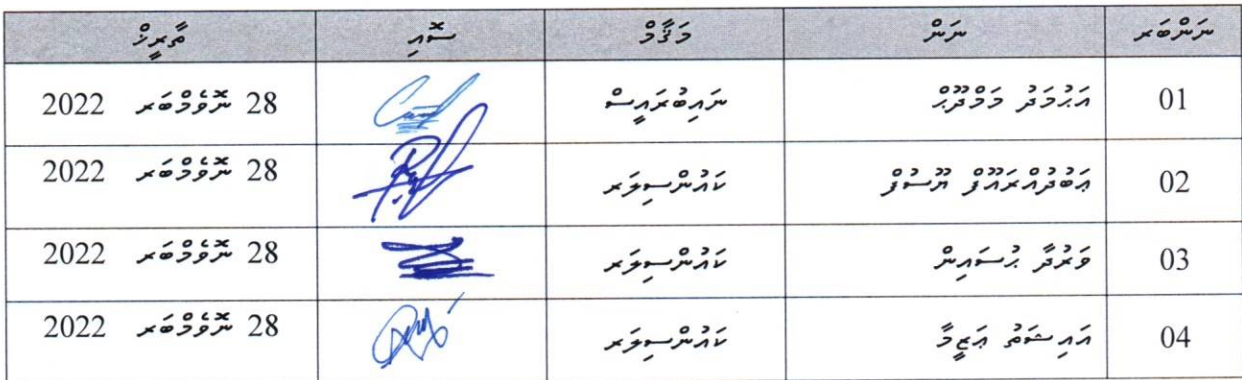 ނަންބަރު ނަން މަޤާމް ސޮއި ތާރީޚް
01 އަޙުމަދު މަމްދޫޙް ނައިބުރައީސް 28 ނޮވެމްބަރ 2022
02 ޢަބުދުއްރައޫފް ޔޫސުފް ކައުންސިލަރ 28 ނޮވެމްބަރ 2022
03 ވަރުދާ ޙުސައިން ކައުންސިލަރ 28 ނޮވެމްބަރ 2022
04 އައިޝަތު ޢަޒީމާ ކައުންސިލަރ 28 ނޮވެމްބަރ 2022